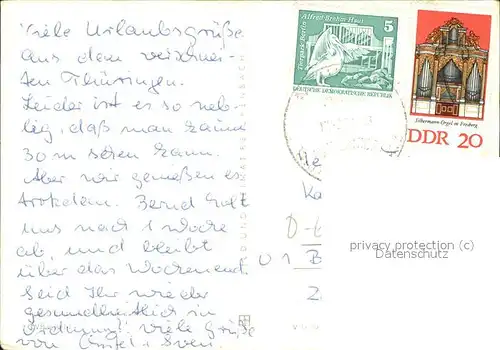 Viele Urlaubsgrüße
aus dem verschnei-
ten Thüringen.
Leider ist es so neb-
lig, daß man kaum
30 m sehen kann.
Aber wir genießen es
trotzdem. Bernd holt
uns nach 1 Woche
ab, und bleibt
über das Wochenend
Seid Ihr wieder
gesundheitlich in
Ordnung? Viele Grüße
von + Sven
Tierpark Berlin
Alfred-Brehm-Haus
5
DEUTSCHE DEMOKRATISCHE REPUBLIK
Silbermann-Orgel in Freiberg
DDR 20
privacy protection (c)
Datenschutz